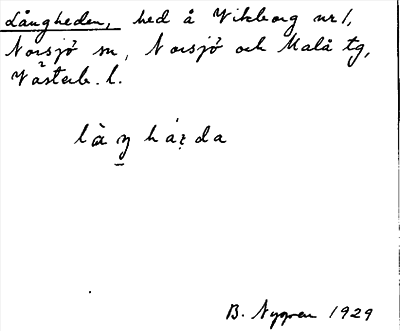 Långheden, hed å Vikborg nr 1,
Norsjö sn, Norsjö och Malå tg,
Västerb. l.
làŋ há̤da
B. Nygren 1929